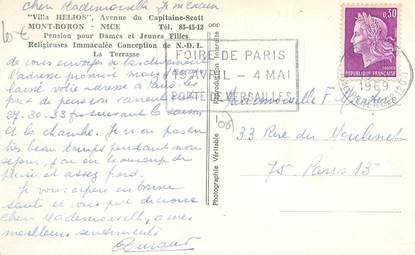 Chère Mademoiselle Je m'excuse
"Villa HELIOS", Avenue du Capitaine-Scott
MONT-BORON - NICE Tél. 85-45-12
Pension pour Dames et Jeunes Filles
Religieuses Immaculée Conception de N.-D. L.
La Terrasse
10 €
de vous envoyer
l'adresse promise mais
laissé votre adresse à Paris. les
prix de pension varient entre
27.30.33 frs suivant la saison
et la chambre. Je n'ai pas eu
très beau temps pendant mon
séjour, j'ai eu beaucoup de
pluie et assez froid.
Je vous espère en bonne
santé et vous prie de croire
Chère Mademoiselle, à mes
meilleurs sentiments
Photographie Véritable
Reproduction interdite
FOIRE DE PARIS
AVRIL - 4 MAI
PORTE DE VERSAILLES
0,30
REPUBLIQUE FRANÇAISE
1969
Mademoiselle F
33 Rue du Moulinet
75 Paris 13e